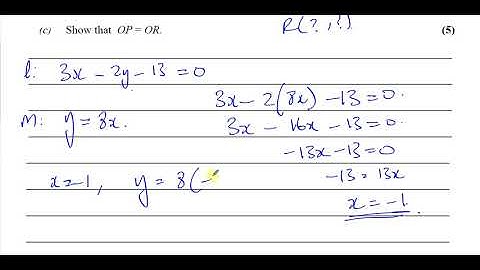 (c) Show that OP = OR. R(?, ?) (5)
l: 3x - 2y - 13 = 0
3x - 2(8x) - 13 = 0.
m: y = 8x. 3x - 16x - 13 = 0
-13x - 13 = 0
x = -1, y = 8(- -13 = 13x
x = -1.